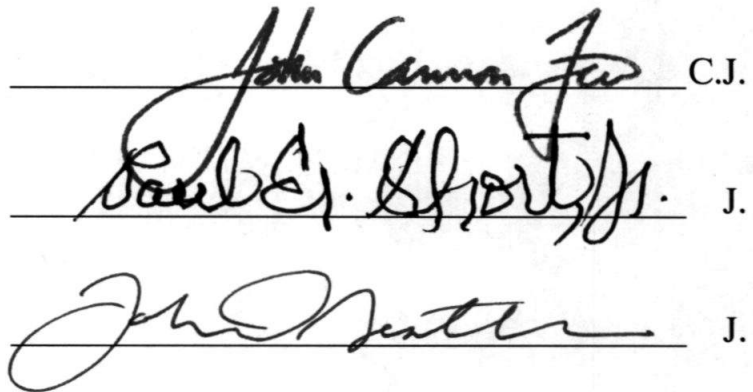 John Cannon Few C.J.
Paul E. Short, Jr. J.
John J.